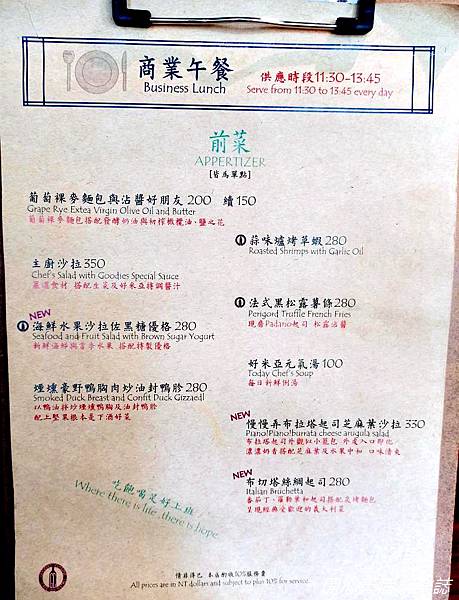 商業午餐
Business Lunch
供應時段11:30-13:45
Serve from 11:30 to 13:45 every day
前菜
APPERTIZER
[皆為單點]
葡萄裸麥麵包與沾醬好朋友 200 續 150
Grape Rye Extea Virgin Olive Oil and Butter
葡萄裸麥麵包搭配發酵奶油與初榨橄欖油、鹽之花
主廚沙拉 350
Chef's Salad with Goodies Special Sauce
嚴選食材 搭配生菜及好米亞特調醬汁
NEW
海鮮水果沙拉佐黑糖優格 280
Seafood and Fruit Salad with Brown Sugar Yogurt
新鮮海鮮與當季水果 搭配特製優格
煙燻豪野鴨胸肉炒油封鴨胗 280
Smoked Duck Breast and Confit Duck Gizzaedl
以鴨油拌炒煙燻鴨胸及油封鴨胗
配上堅果根本是下酒好菜
蒜味爐烤草蝦 280
Roasted Shrimps with Garlic Oil
法式黑松露薯條 280
Perigord Truffle French Fries
現磨Padano起司 松露沾醬
好米亞元氣湯 100
Today Chef's Soup
每日新鮮例湯
NEW
慢慢弄布拉塔起司芝麻葉沙拉 330
Piano!Piano!burrata cheese arugula salad
布拉塔起司外觀似小籠包 外皮入口即化
濃濃奶香搭配芝麻葉及水果中和 口味清爽
NEW
布切塔絲綢起司 280
Italian Bruchetta
番茄丁、羅勒葉和起司搭配炭烤麵包
呈現經典受歡迎的義大利菜
吃飽喝足好上班
Where there is life, there is hope
情非得已 本店酌收10%服務費
All prices are in NT dollars and subject to plus 10% for service.